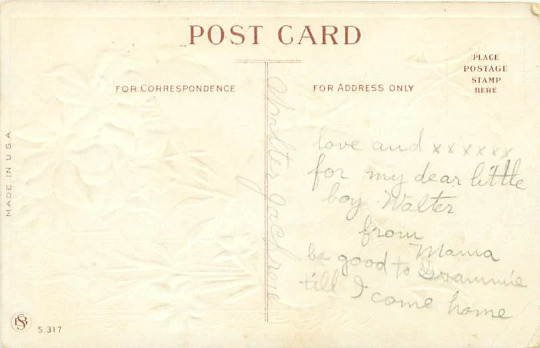 POST CARD
FOR CORRESPONDENCE
FOR ADDRESS ONLY
PLACE
POSTAGE
STAMP
HERE
MADE IN U S A
Walter
love and xxxxxx
for my dear little
boy Walter
from
Mama
be good to Grammie
till I come home
S.317